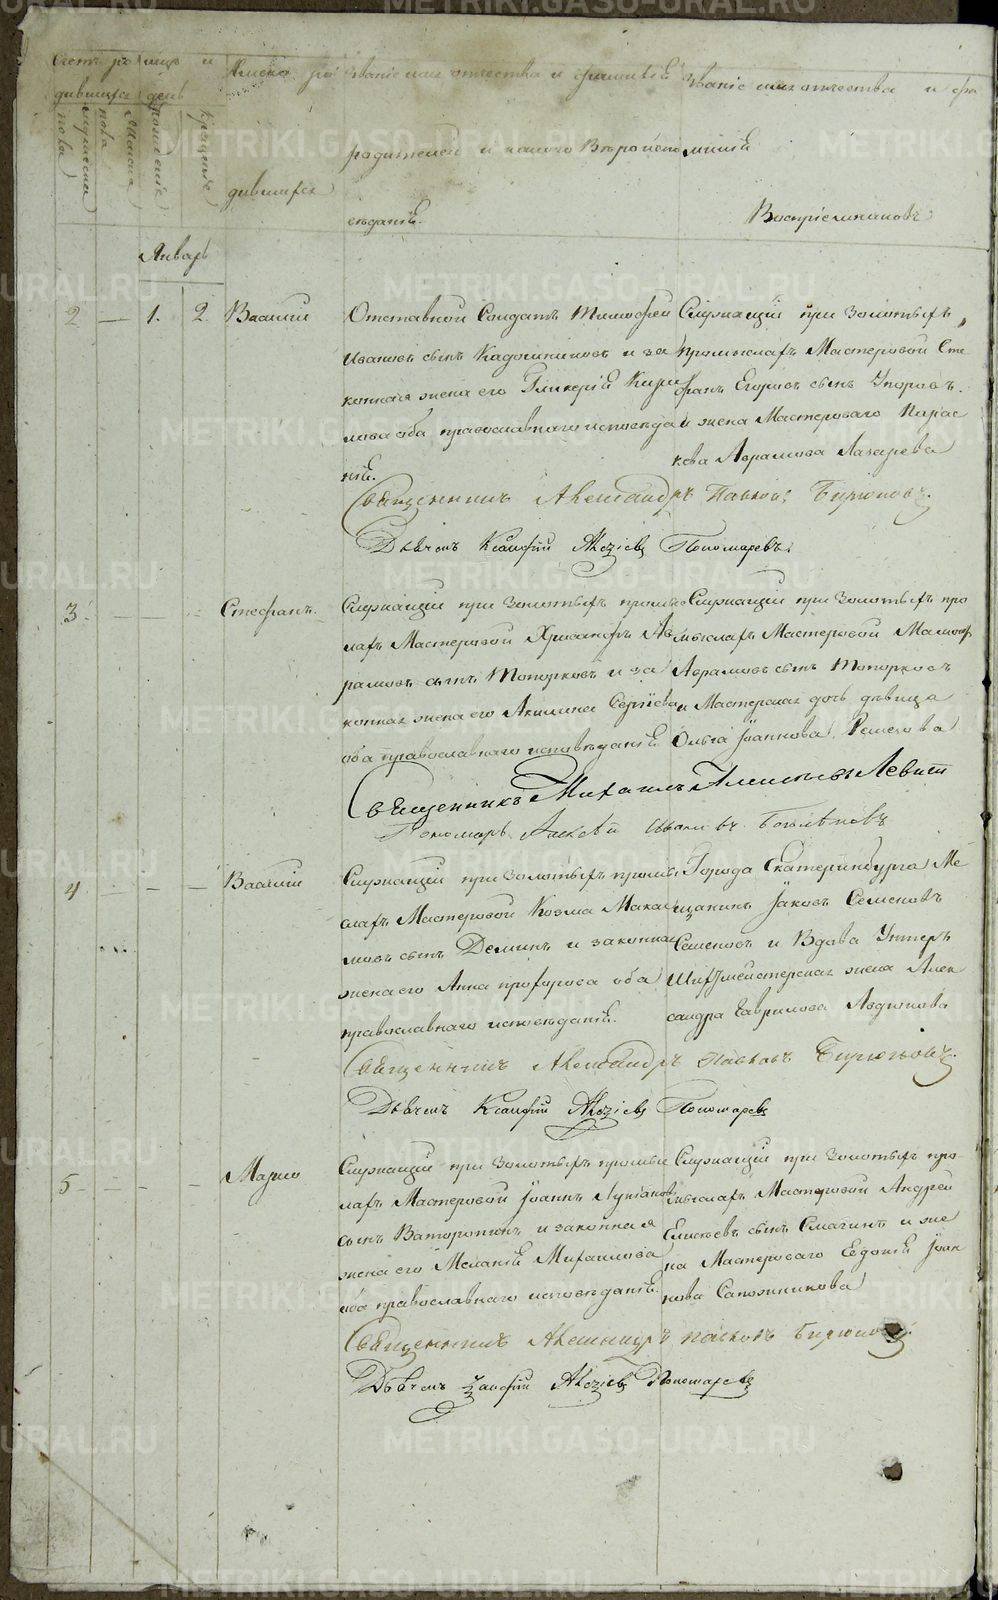 Счетъ ро
дившихся
мужеска пола
женска пола
месяцъ и день
рожденiя
крещенiя
Имена ро
дившихся
Званiе имя отчества и фамилiя
родителей и какого вѣроиспо
вѣданiя.
Званiе имя отчества и фа
милiя
Воспрiемниковъ
Январь
2 — 1. 2 Василiй
Отставной Солдатъ Тимофей
Ивановъ сынъ Кадошниковъ и за
конная жена его Гликерiя Кири
лова оба православнаго исповѣда
нiя.
Служащiй при Золотыхъ
промыслахъ Мастеровой Сте
фанъ Егоровъ сынъ
и жена Мастероваго Парас
кева Аврамова Лазарева
Священникъ Александръ Павловъ Бирюковъ.
Дьячекъ Ксанфiй Алексiевъ Пономаревъ.
3 — Стефанъ.
Служащiй при Золотыхъ промыс
лахъ Мастеровой Хрисанфъ Ав
рамовъ сынъ Топорковъ и за
конная жена его Акилина Сергiева
оба православнаго исповѣданiя
Служащiй при Золотыхъ про
мыслахъ Мастеровой
Аврамовъ сынъ Топорковъ
и Мастерская дочь дѣвица
Ольга Iоаннова
Священникъ Михаилъ Левит
Пономарь Алексѣй
4 — — — Василiй
Служащiй при Золотыхъ промы
слахъ Мастеровой Козма Мака
мовъ сынъ Деминъ и законная
жена его Анна оба
православнаго исповѣданiя.
Города Екатеринбурга Мѣ
щанинъ Iаковъ Семеновъ
Семеновъ и Вдова Унтеръ
Шихтмейстерская жена Алек
сандра Гаврилова Авдюкова
Священникъ Александръ Павловъ Бирюковъ.
Дьячекъ Ксанфiй Алексiевъ Пономаревъ
5 — — — — Марiя
Служащiй при Золотыхъ промы
слахъ Мастеровой Iоаннъ Лукiановъ
сынъ Ваторопинъ и законная
жена его Меланiя Михаилова
оба православнаго исповѣданiя.
Служащiй при Золотыхъ про
мыслахъ Мастеровой Андрей
Елисѣевъ сынъ Смагинъ и же
на Мастероваго Евдокiя Iоан
нова Сапожникова
Священникъ Александръ Павловъ Бирюковъ.
Дьячекъ Ксанфiй Алексiевъ Пономаревъ
METRIKI.GASO-URAL.RU